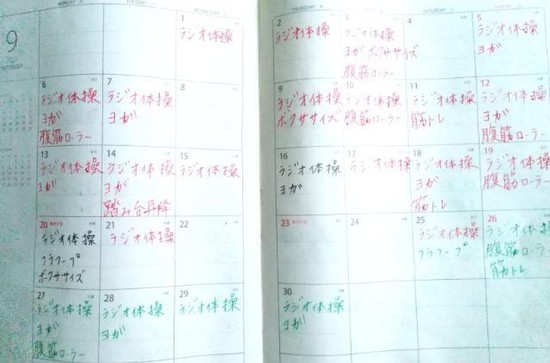 9
1
ラジオ体操
6
ラジオ体操
ヨガ
腹筋ローラー
7
ラジオ体操
ヨガ
8
13
ラジオ体操
ヨガ
14
ラジオ体操
ヨガ
踏み台昇降
15
ラジオ体操
20
ラジオ体操
フラフープ
ボクササイズ
21
ラジオ体操
22
27
ラジオ体操
ヨガ
腹筋ローラー
28
ラジオ体操
ヨガ
29
ラジオ体操
2
ラジオ体操
3
ラジオ体操
ヨガ ボクササイズ
腹筋ローラー
4
ラジオ体操
5
ラジオ体操
ヨガ
9
ラジオ体操
ボクササイズ
10
ラジオ体操
腹筋ローラー
11
ラジオ体操
筋トレ
12
ラジオ体操
ヨガ
腹筋ローラー
16
ラジオ体操
ヨガ
17
ラジオ体操
18
ラジオ体操
ヨガ
筋トレ
19
ラジオ体操
腹筋ローラー
23
24
25
ラジオ体操
フラフープ
26
ラジオ体操
腹筋ローラー
筋トレ
30
ラジオ体操
ヨガ